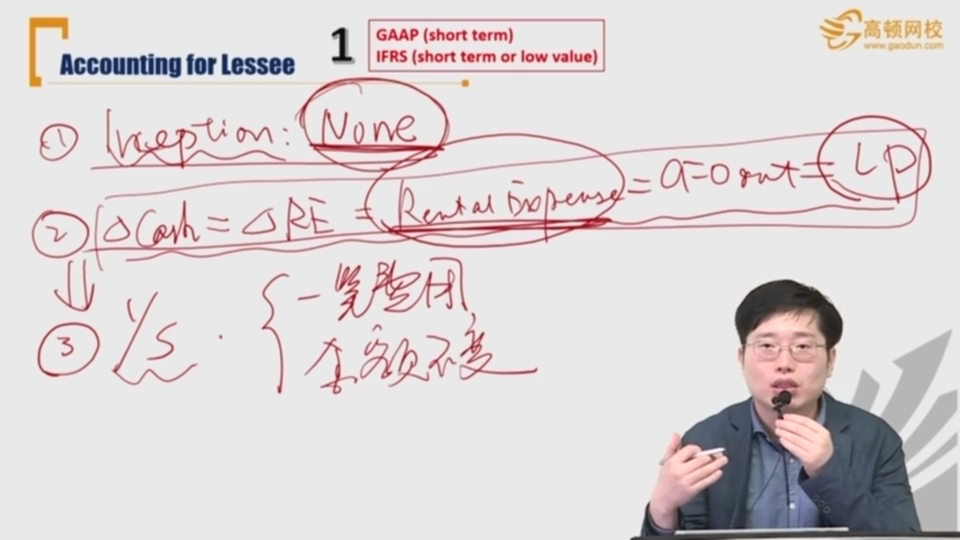 Accounting for Lessee
1
GAAP (short term)
IFRS (short term or low value)
高顿网校
www.gaodun.com
① Inception: None
② △Cash = △RE = Rental Expense = a=0 out = LP
③ I/S. { 一笔费用
金额不变